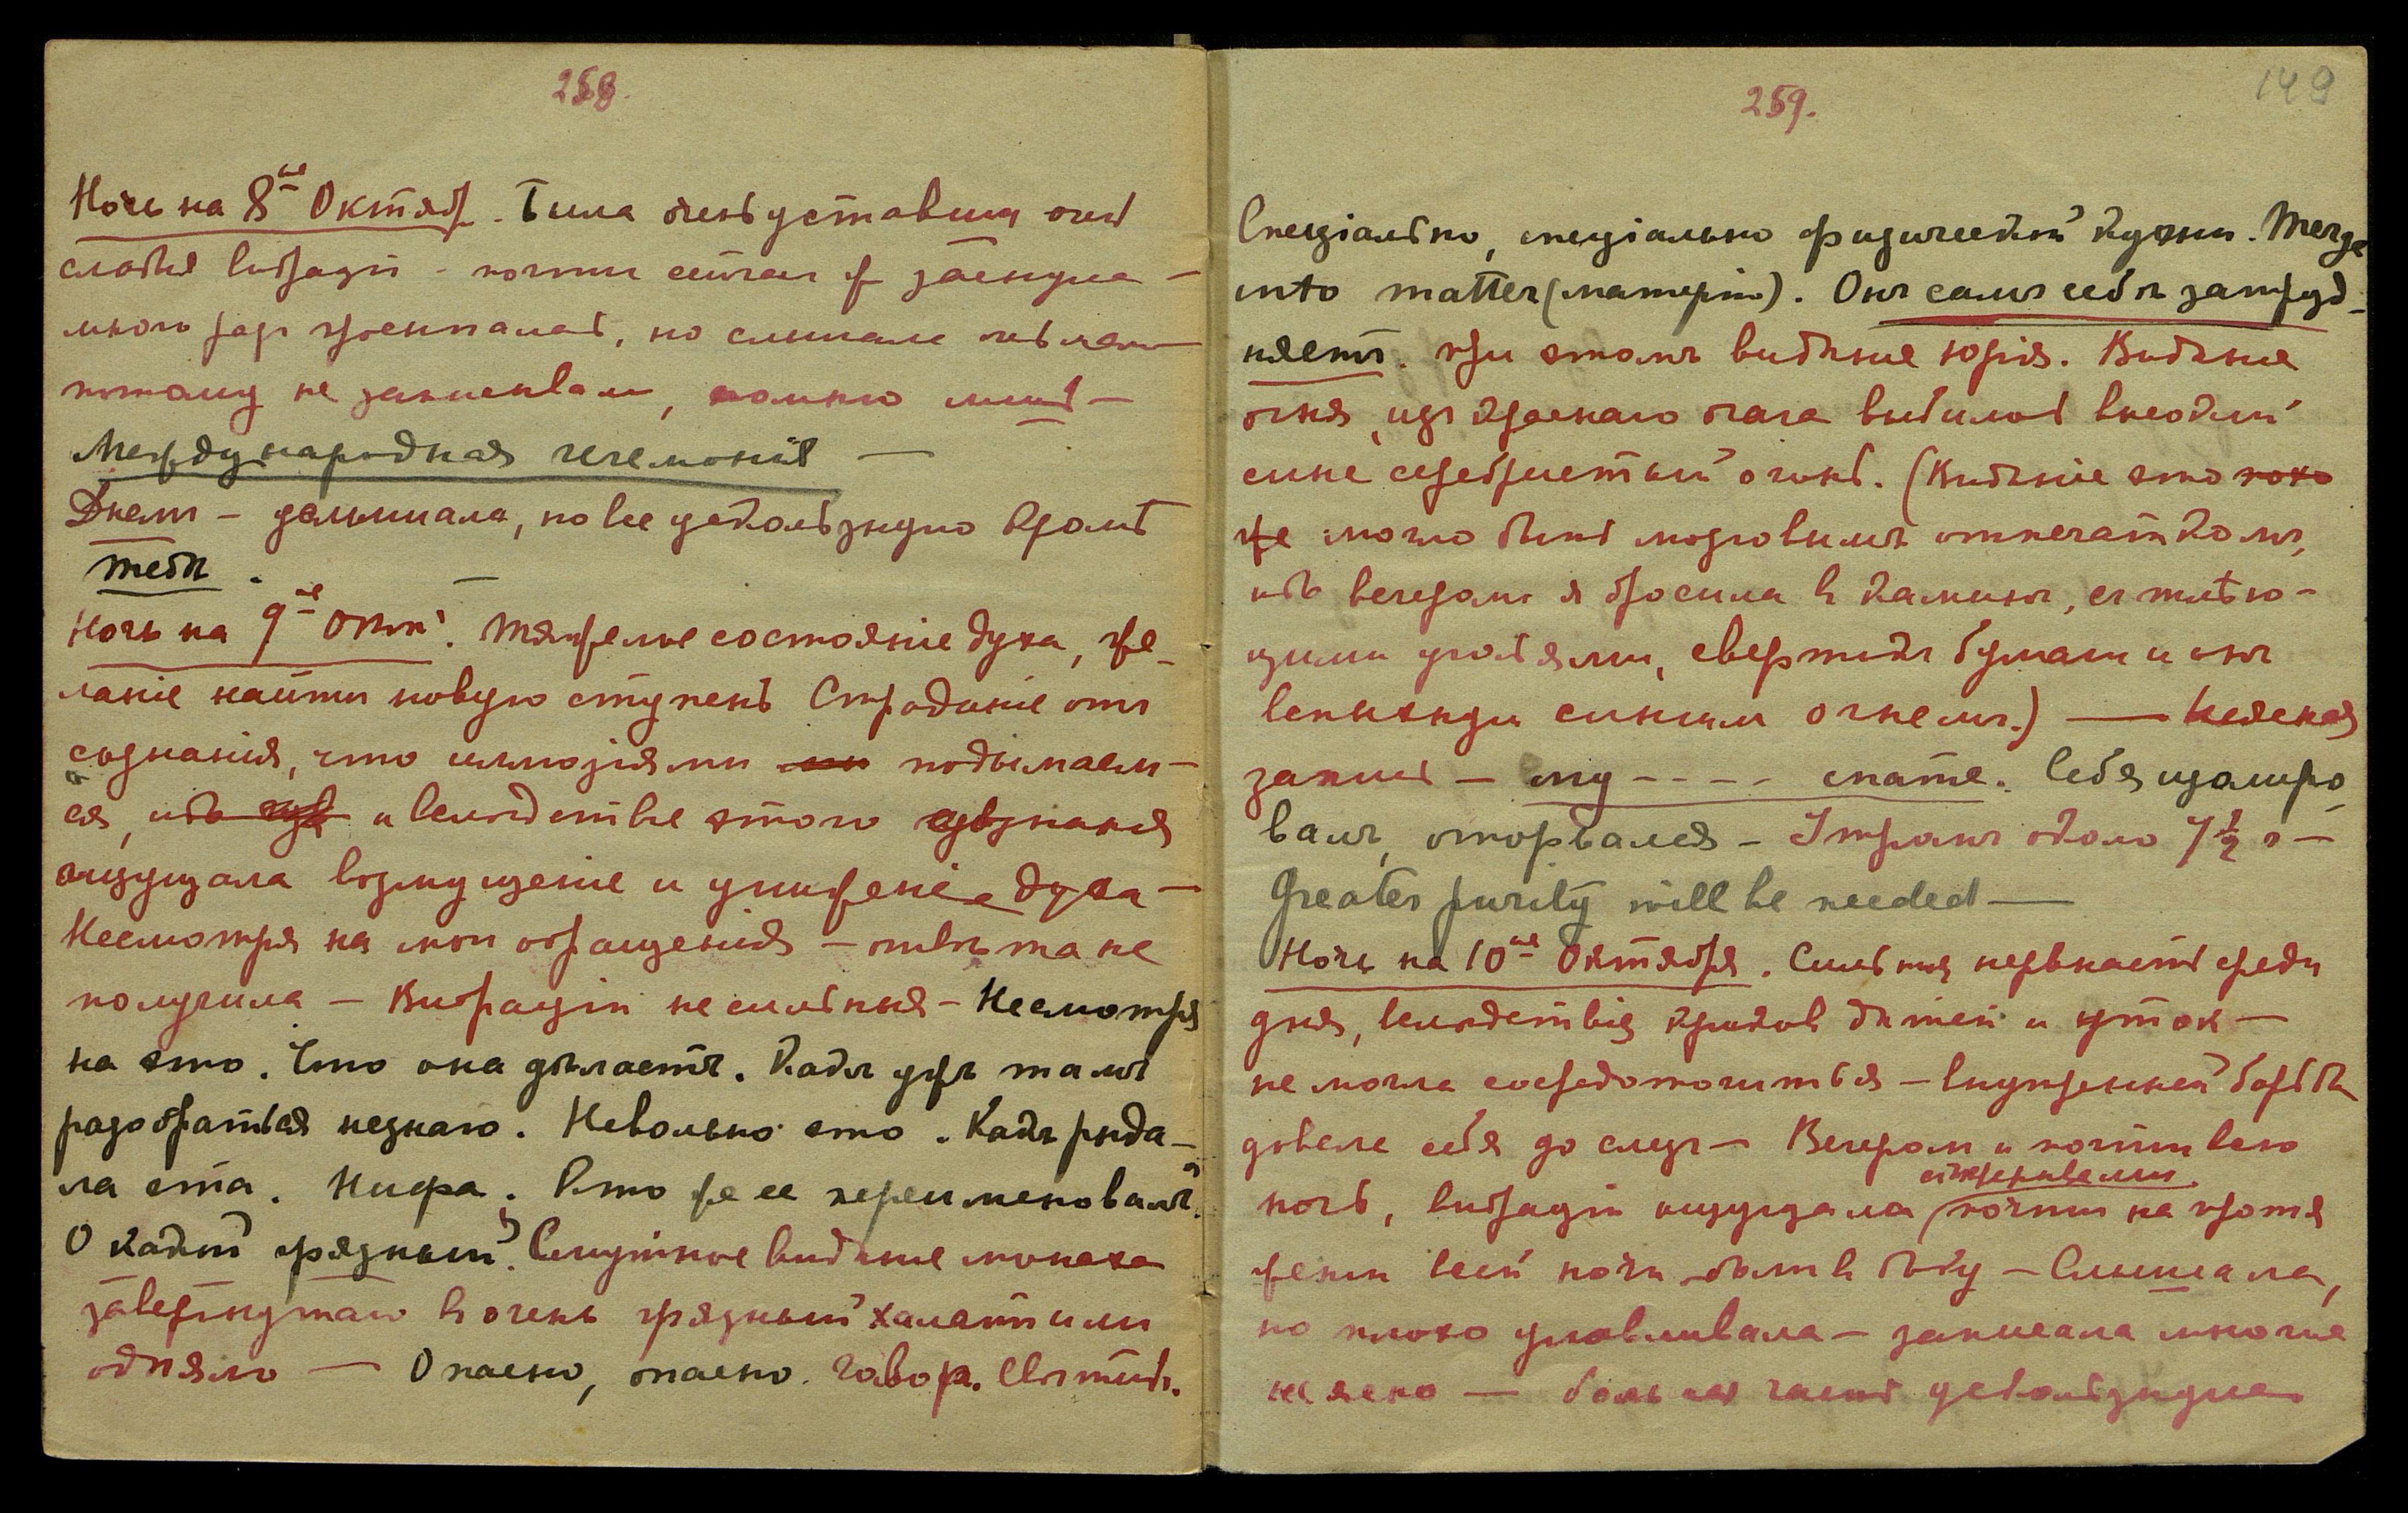 258.
Ночь на 8ое Октяб. Была очень уставши очен
слабыя вибраціи - почти сейчас ж заснула -
много раз просыпалась, но слышала
потому не записывала, помню лишь -
Международная гегемонія —
Днем - услышала, но все ускользнуло кромѣ
тебѣ.
Ночь на 9ое Окт. Тяжелое состояніе духа, же-
ланіе найти новую ступень Страданіе отъ
сознанія, что иллюзіями ми подымаем-
ся, ибо и вслѣдствіе этого сознанія
ощущала возмущеніе и униженіе духа —
Несмотря на мои обращенія — отвѣта не
получила — Вибраціи не сильныя - Несмотря
на это. Что она дѣлаетъ. Какъ ужъ тамъ
разобраться незнаю. Невольно это. Какъ рыда-
ла эта. Нифра. Кто же ее переименовалъ.
О какой грязный. Смутное видѣніе монаха
завернутаго в очень грязный халатъ или
одѣяло — Опасно, опасно. Говор. Святик.
259.
149
Спеціально, спеціально физической кухни. Merge
into matter (матерію). Онъ самъ себѣ затруд-
няетъ. при этомъ видѣніе Юрія. Видѣніе
огня, изъ краснаго очага выбился высокій
сине серебристый огонь. (Видѣніе это тоже
же могло быть мозговымъ отпечаткомъ,
ибо вечеромъ я бросила в каминъ, съ тлѣю-
щими угольями, свертокъ бумаги и онъ
вспыхнул синимъ огнемъ.) — Неясная
запись - му - - - - спате. Себя изолиро
валъ, оторвался - Утромъ около 7½ ч —
Greater purity will be needed —
Ночь на 10ое Октября. Сильная нервность среди
дня, вслѣдствіе криков дѣтей и уток —
не могла сосредоточиться - внутренней борьбы
довела себя до слез — Вечером и почти всю
съ перерывами
ночь, вибраціи ощущала почти на протя
женіи всей ночи были в боку — Слышала,
но плохо улавливала — записала многое
неясно — большая часть ускользнула